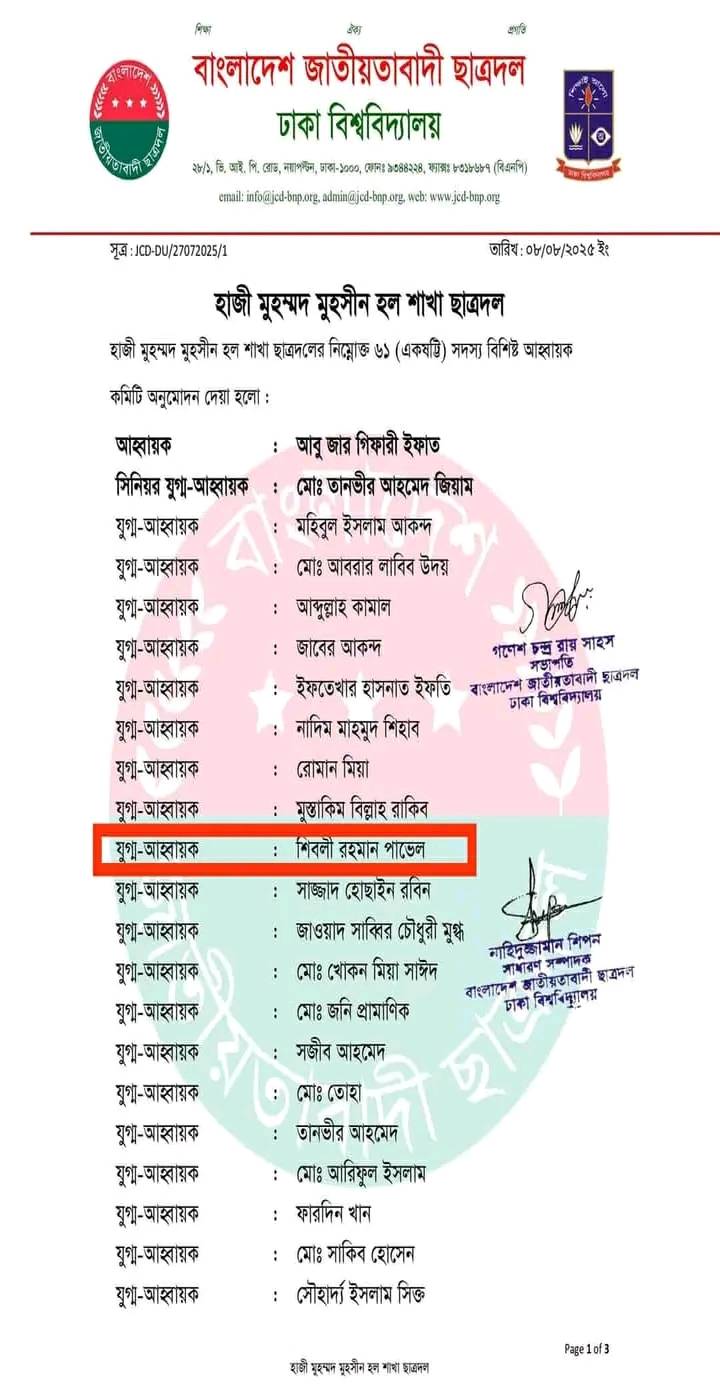 শিক্ষা ঐক্য প্রগতি
বাংলাদেশ জাতীয়তাবাদী ছাত্রদল
ঢাকা বিশ্ববিদ্যালয়
২৮/১, ভি. আই. পি. রোড, নয়াপল্টন, ঢাকা-১০০০, ফোনঃ ৯৩৪৪২২৪, ফ্যাক্সঃ ৮৩১৮৬৮৭ (বিএনপি)
email: info@jcd-bnp.org, admin@jcd-bnp.org, web: www.jcd-bnp.org
বাংলাদেশ
জাতীয়তাবাদী ছাত্রদল
শিক্ষাই আলো
ঢাকা বিশ্ববিদ্যালয়
সূত্র : JCD-DU/27072025/1 তারিখ : ০৮/০৮/২০২৫ ইং
হাজী মুহম্মদ মুহসীন হল শাখা ছাত্রদল
হাজী মুহম্মদ মুহসীন হল শাখা ছাত্রদলের নিম্নোক্ত ৬১ (একষট্টি) সদস্য বিশিষ্ট আহ্বায়ক
কমিটি অনুমোদন দেয়া হলো :
আহ্বায়ক : আবু জার গিফারী ইফাত
সিনিয়র যুগ্ম-আহ্বায়ক : মোঃ তানভীর আহমেদ জিয়াম
যুগ্ম-আহ্বায়ক : মহিবুল ইসলাম আকন্দ
যুগ্ম-আহ্বায়ক : মোঃ আবরার লাবিব উদয়
যুগ্ম-আহ্বায়ক : আব্দুল্লাহ কামাল
যুগ্ম-আহ্বায়ক : জাবের আকন্দ
যুগ্ম-আহ্বায়ক : ইফতেখার হাসনাত ইফতি
যুগ্ম-আহ্বায়ক : নাদিম মাহমুদ শিহাব
যুগ্ম-আহ্বায়ক : রোমান মিয়া
যুগ্ম-আহ্বায়ক : মুস্তাকিম বিল্লাহ রাকিব
যুগ্ম-আহ্বায়ক : শিবলী রহমান পাভেল
যুগ্ম-আহ্বায়ক : সাজ্জাদ হোছাইন রবিন
যুগ্ম-আহ্বায়ক : জাওয়াদ সাব্বির চৌধুরী মুগ্ধ
যুগ্ম-আহ্বায়ক : মোঃ খোকন মিয়া সাঈদ
যুগ্ম-আহ্বায়ক : মোঃ জনি প্রামাণিক
যুগ্ম-আহ্বায়ক : সজীব আহমেদ
যুগ্ম-আহ্বায়ক : মোঃ তোহা
যুগ্ম-আহ্বায়ক : তানভীর আহমেদ
যুগ্ম-আহ্বায়ক : মোঃ আরিফুল ইসলাম
যুগ্ম-আহ্বায়ক : ফারদিন খান
যুগ্ম-আহ্বায়ক : মোঃ সাকিব হোসেন
যুগ্ম-আহ্বায়ক : সৌহার্দ্য ইসলাম সিক্ত
গণেশ চন্দ্র রায় সাহস
সভাপতি
বাংলাদেশ জাতীয়তাবাদী ছাত্রদল
ঢাকা বিশ্ববিদ্যালয়
নাহিদুজ্জামান শিপন
সাধারণ সম্পাদক
বাংলাদেশ জাতীয়তাবাদী ছাত্রদল
ঢাকা বিশ্ববিদ্যালয়
বাংলাদেশ
জাতীয়তাবাদী ছাত্রদল
Page 1 of 3
হাজী মুহম্মদ মুহসীন হল শাখা ছাত্রদল